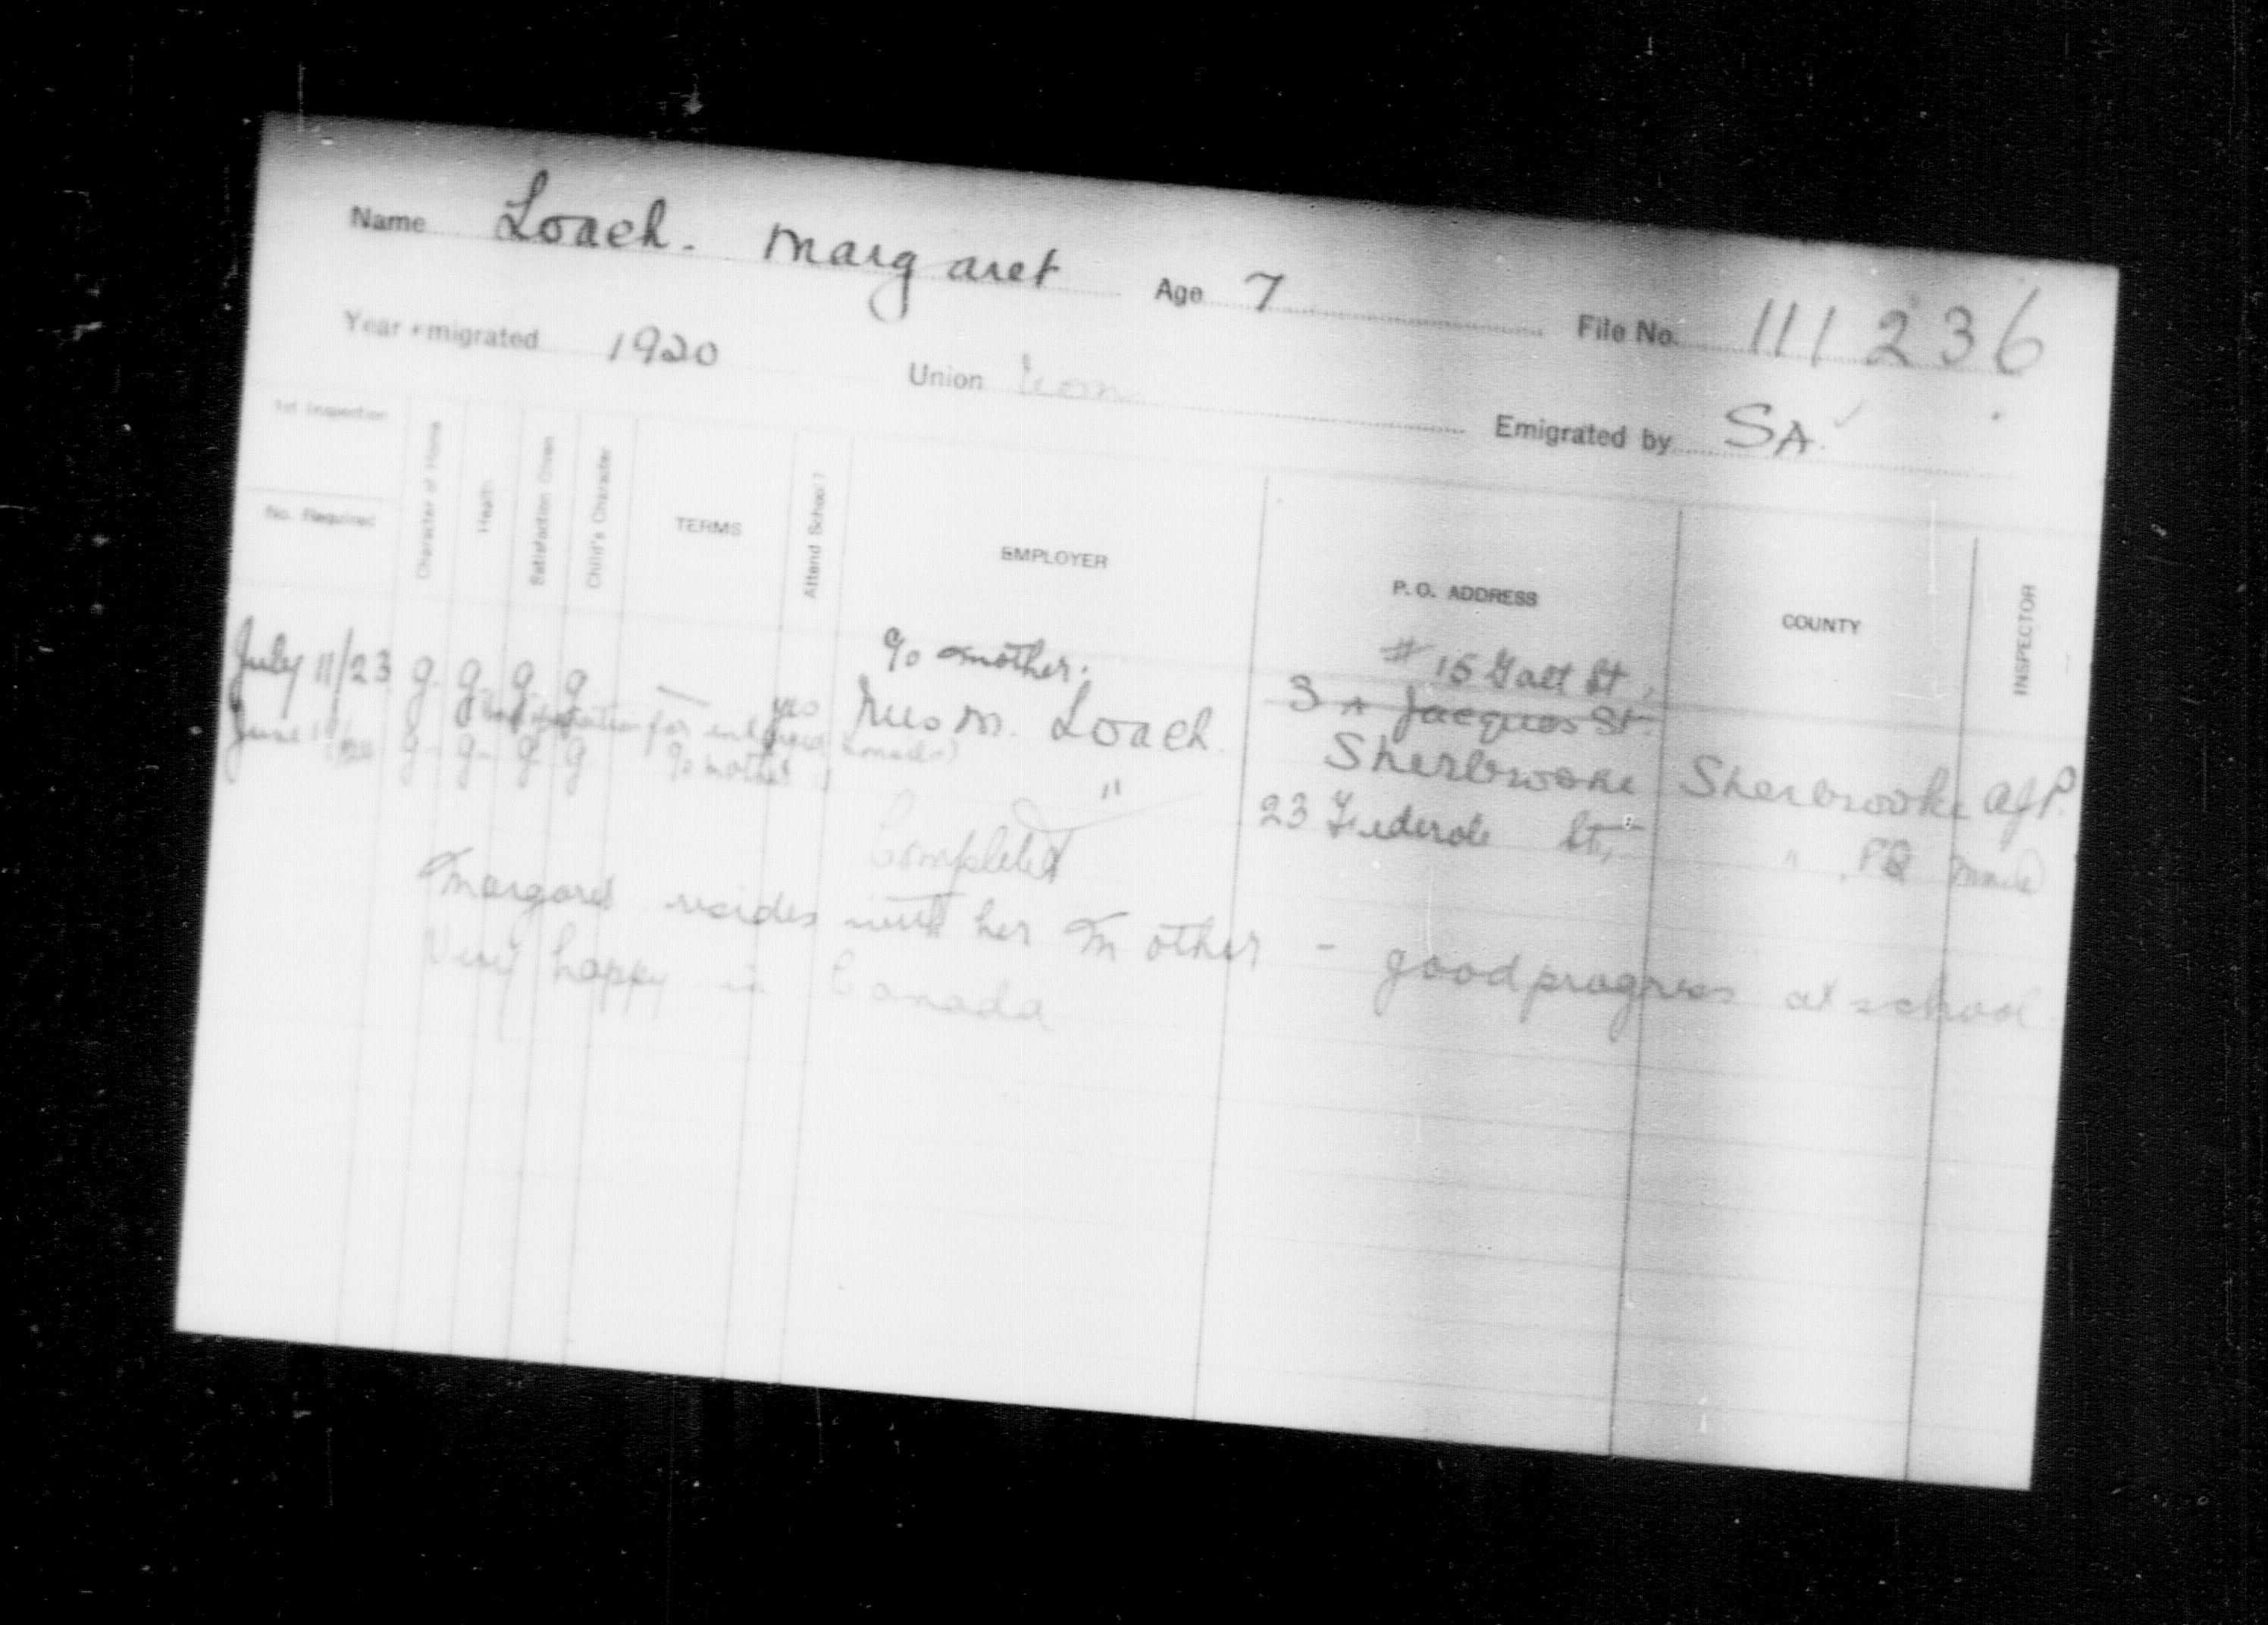 Name Loach. Margaret Age 7 File No. 111236
Year emigrated 1920 Union Emigrated by SA
1st Inspection
No. Required
Character of Home
Health
Satisfaction Given
Child's Character
TERMS
Attend School?
EMPLOYER
P. O. ADDRESS
COUNTY
INSPECTOR
c/o mother. # 15 Galt St.
July 11/23 g. g. g. g. — yes Mrs M. Loach 3 A Jacques St.
Sherbrooke Sherbrooke
June g. g. g. g. c/o mother " " 23 Federal St, " PQ
Completed
Margaret resides with her Mother - good progress at school
Very happy in Canada